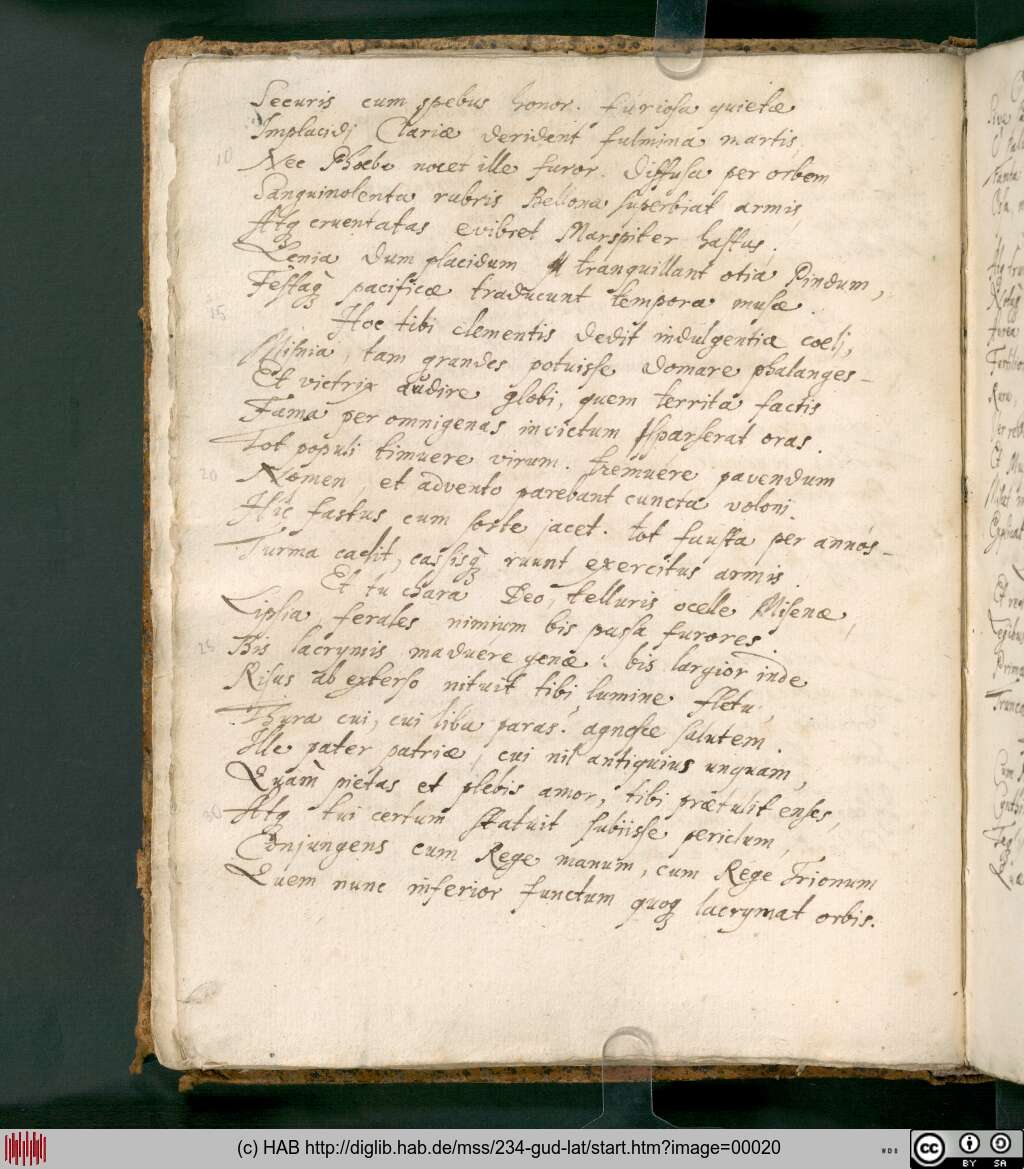 Securis cum spebus honor. furiosa quietæ
Implacidi Clariæ derident fulmina martis,
10 Nec Phœbo nocet ille furor. Diffusa per orbem
Sanguinolenta rubris Bellona superbiat armis,
Atq cruentatas evibret Marspiter hastas,
Lenia dum placidum tranquillant otia Pindum,
Festaq pacificæ traducunt tempora musæ.
15 Hoc tibi clementis dedit indulgentia coeli,
Misnia, tam grandes potuisse domare phalanges
Et victrix audire globi, quem territa factis
Fama per omnigenas invictum sparserat oras.
Tot populi timuere virum. tremuere pavendum
20 Nomen, et advento parebant cuncta voloni.
Hic fastus cum sorte jacet. tot fausta per annos
Turma cadit, cassisq ruunt exercitus armis.
Et tu chara Deo, telluris ocelle Misenæ,
Lipsia ferales nimium bis passa furores.
25 Bis lacrymis maduere genæ: bis largior inde
Risus ab exterso nituit tibi lumine fletu,
Thura cui, cui liba paras? agnosce salutem.
Ille pater patriæ, cui nil antiquius unquam,
Quam pietas et plebis amor, tibi prætulit enses,
30 Atq tui certum statuit subiisse periclum,
Conjungens cum Rege manum, cum Rege Trionum
Quem nunc inferior functum quoq lacrymat orbis.
(c) HAB http://diglib.hab.de/mss/234-gud-lat/start.htm?image=00020
cc BY SA